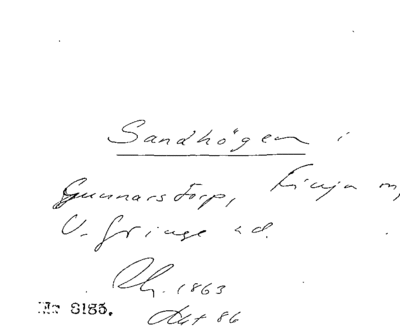 Sandhögen i
Gunnarstorp, Finja m,
V. Göinge hd.
Rh. 1863
Nr 8185.
Akt 86